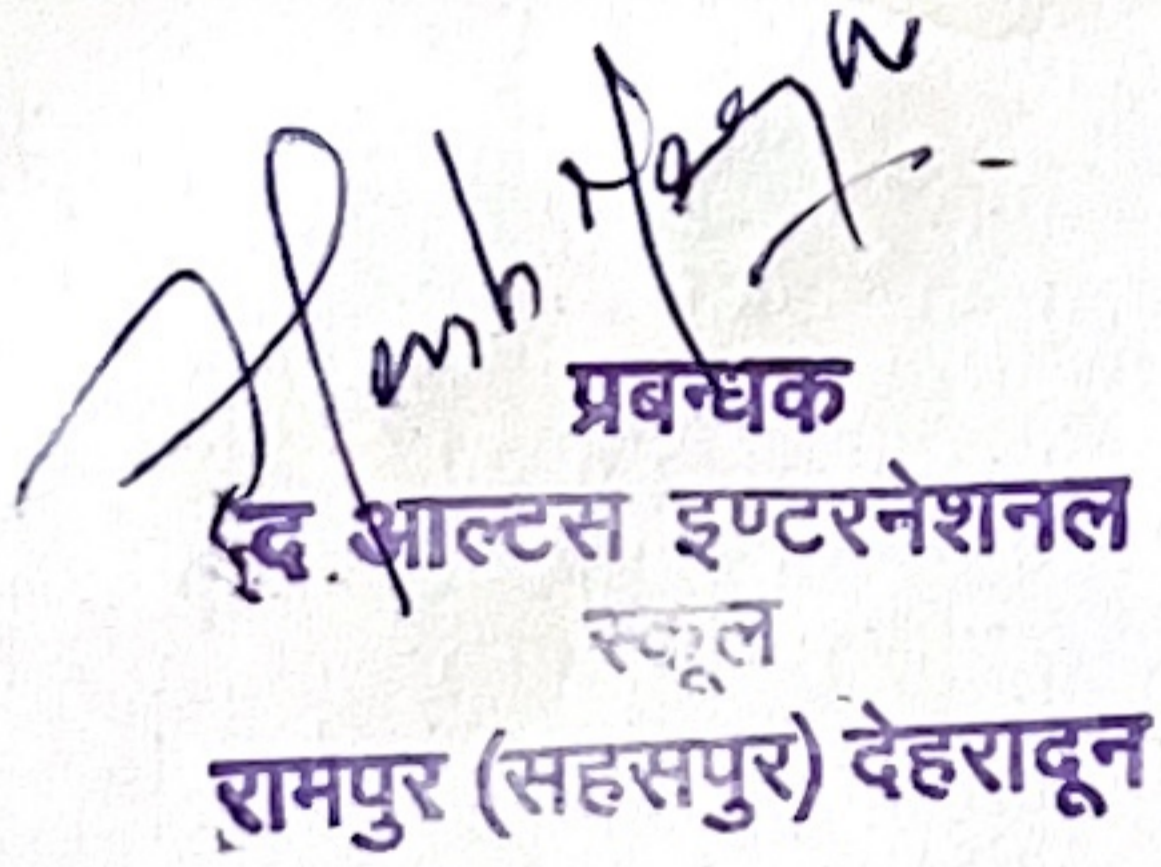 प्रबन्धक
द आल्टस इण्टरनेशनल
स्कूल
रामपुर (सहसपुर) देहरादून